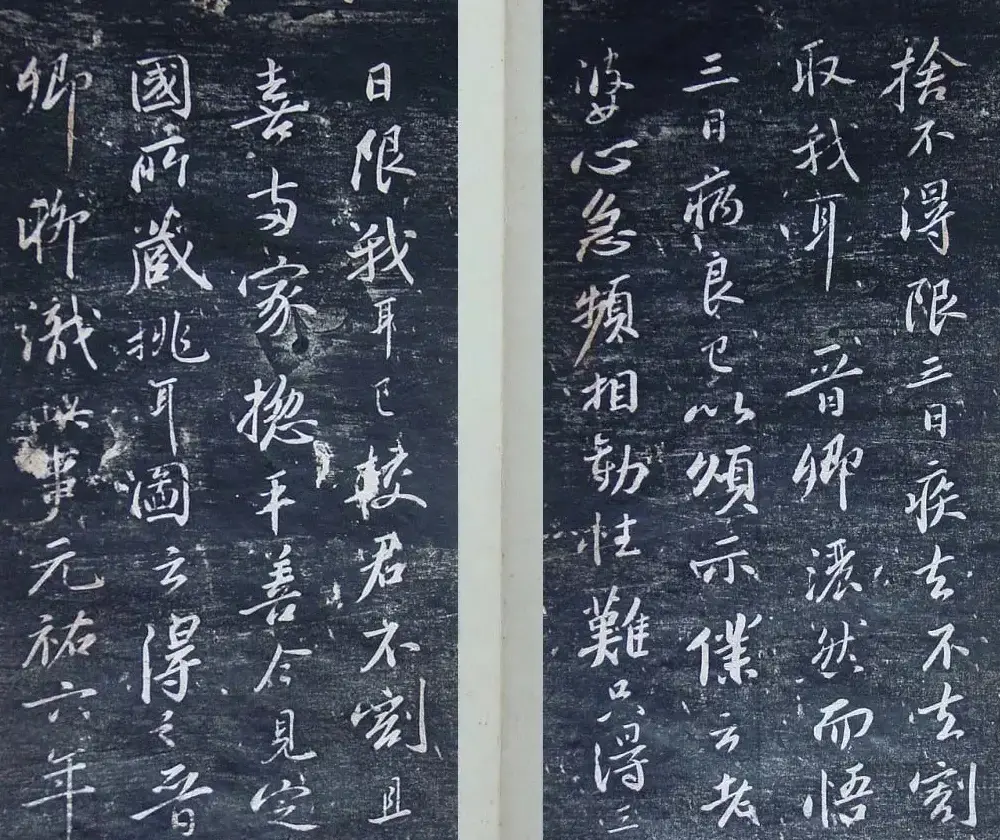 捨不得限三日疾去不去割
取我耳晉卿灑然而悟
三日病良已以頌示僕云老
婆心急頻相勸性難只得三
日限我耳已較君不割且
喜兩家揔平善今見定
國所藏挑耳圖云得之晉
卿聊識此事元祐六年